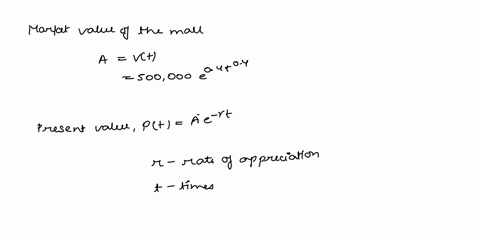 Market value of the mall
A = V(t)
= 500,000 e^0.4t^0.4
Present value, P(t) = A e^-rt
r - rate of appreciation
t - times